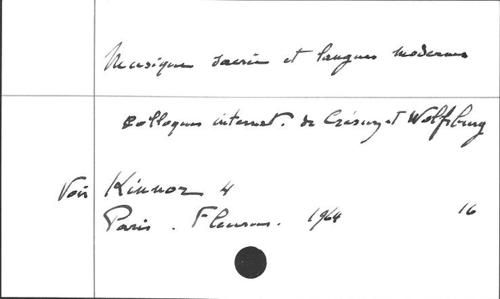 Musique sacrée et langues modernes
Colloques internat. de Crésuz et Wolfsburg
Voir Kinnor 4
Paris. Fleurus. 1964 16